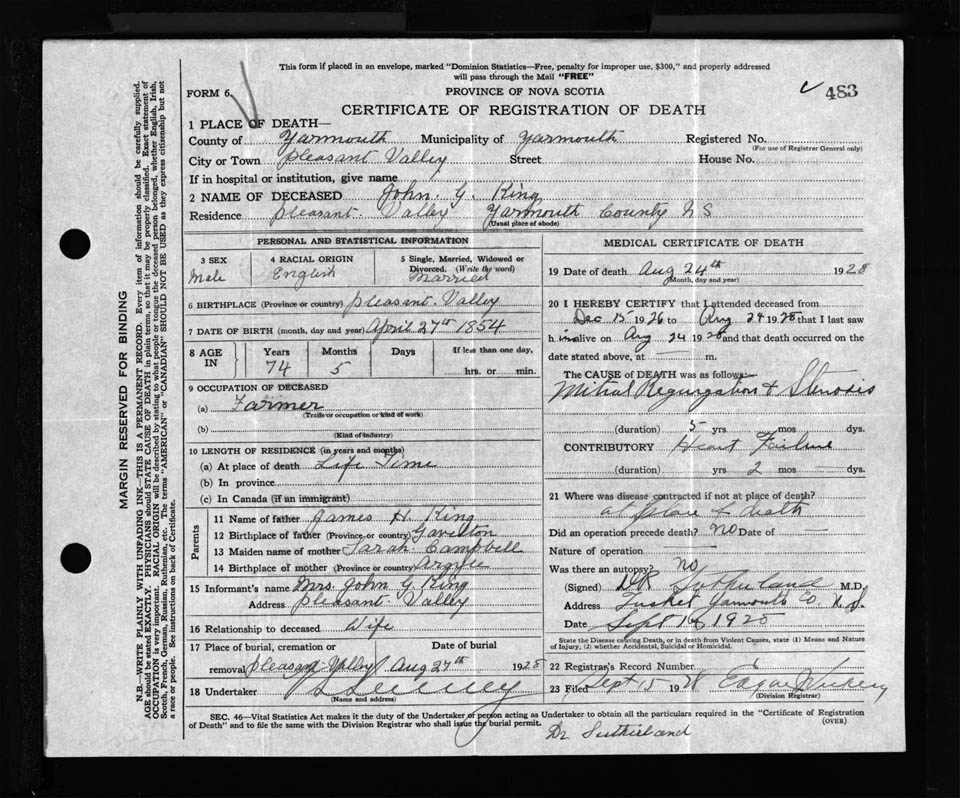 This form if placed in an envelope, marked "Dominion Statistics—Free, penalty for improper use, $300," and properly addressed
will pass through the Mail "FREE"
FORM 6
PROVINCE OF NOVA SCOTIA
483
CERTIFICATE OF REGISTRATION OF DEATH
1 PLACE OF DEATH—
County of Yarmouth Municipality of Yarmouth Registered No.
(For use of Registrar General only)
City or Town Pleasant Valley Street House No.
If in hospital or institution, give name
2 NAME OF DECEASED John. G. King
Residence Pleasant. Valley Yarmouth County N S
(Usual place of abode)
PERSONAL AND STATISTICAL INFORMATION
3 SEX
Male
4 RACIAL ORIGIN
English
5 Single, Married, Widowed or
Divorced. (Write the word)
Married
6 BIRTHPLACE (Province or country) Pleasant. Valley
7 DATE OF BIRTH (month, day and year) April 27th 1854
8 AGE IN
Years Months Days If less than one day,
74 5 hrs. or min.
9 OCCUPATION OF DECEASED
(a) Farmer
(Trade or occupation or kind of work)
(b)
(Kind of industry)
10 LENGTH OF RESIDENCE (in years and months)
(a) At place of death Life Time
(b) In province
(c) In Canada (if an immigrant)
Parents
11 Name of father James H. King
12 Birthplace of father (Province or country)
13 Maiden name of mother Sarah Campbell
14 Birthplace of mother (Province or country) Argyle
15 Informant's name Mrs. John G King
Address Pleasant Valley
16 Relationship to deceased Wife
17 Place of burial, cremation or Date of burial
removal Pleasant Valley Aug 27th 1928
18 Undertaker
(Name and address)
MEDICAL CERTIFICATE OF DEATH
19 Date of death Aug 24th 1928
(Month, day and year)
20 I HEREBY CERTIFY that I attended deceased from
Dec 15 1926 to Aug 24 1928 that I last saw
h im alive on Aug 24 1928 and that death occurred on the
date stated above, at — m.
The CAUSE OF DEATH was as follows:—
Mitral Regurgation & Stenosis
(duration) 5 yrs mos dys.
CONTRIBUTORY Heart Failure
(duration) yrs 2 mos dys.
21 Where was disease contracted if not at place of death?
at place of death
Did an operation precede death? no Date of —
Nature of operation —
Was there an autopsy? No
(Signed) Sutherland M.D.
Address Tusket Yarmouth Co. N.S.
Date Sept
State the Disease causing Death, or in death from Violent Causes, state (1) Means and Nature
of Injury, (2) whether Accidental, Suicidal or Homicidal.
22 Registrar's Record Number
23 Filed Sept 15 1928 Edgar
(Division Registrar)
SEC. 46—Vital Statistics Act makes it the duty of the Undertaker or person acting as Undertaker to obtain all the particulars required in the "Certificate of Registration
of Death" and to file the same with the Division Registrar who shall issue the burial permit.
(OVER)
Dr Sutherland
MARGIN RESERVED FOR BINDING
N.B.—WRITE PLAINLY WITH UNFADING INK—THIS IS A PERMANENT RECORD. Every item of information should be carefully supplied.
AGE should be stated EXACTLY. PHYSICIANS should STATE CAUSE OF DEATH in plain terms, so that it may be properly classified. Exact statement of
OCCUPATION is very important. RACIAL ORIGIN will be described by stating to what people or tongue the deceased person belonged, whether English, Irish,
Scotch, French, German, Russian, Ruthenian, etc. The terms "AMERICAN" or "CANADIAN" SHOULD NOT BE USED as they express citizenship but not
a race or people. See instructions on back of Certificate.